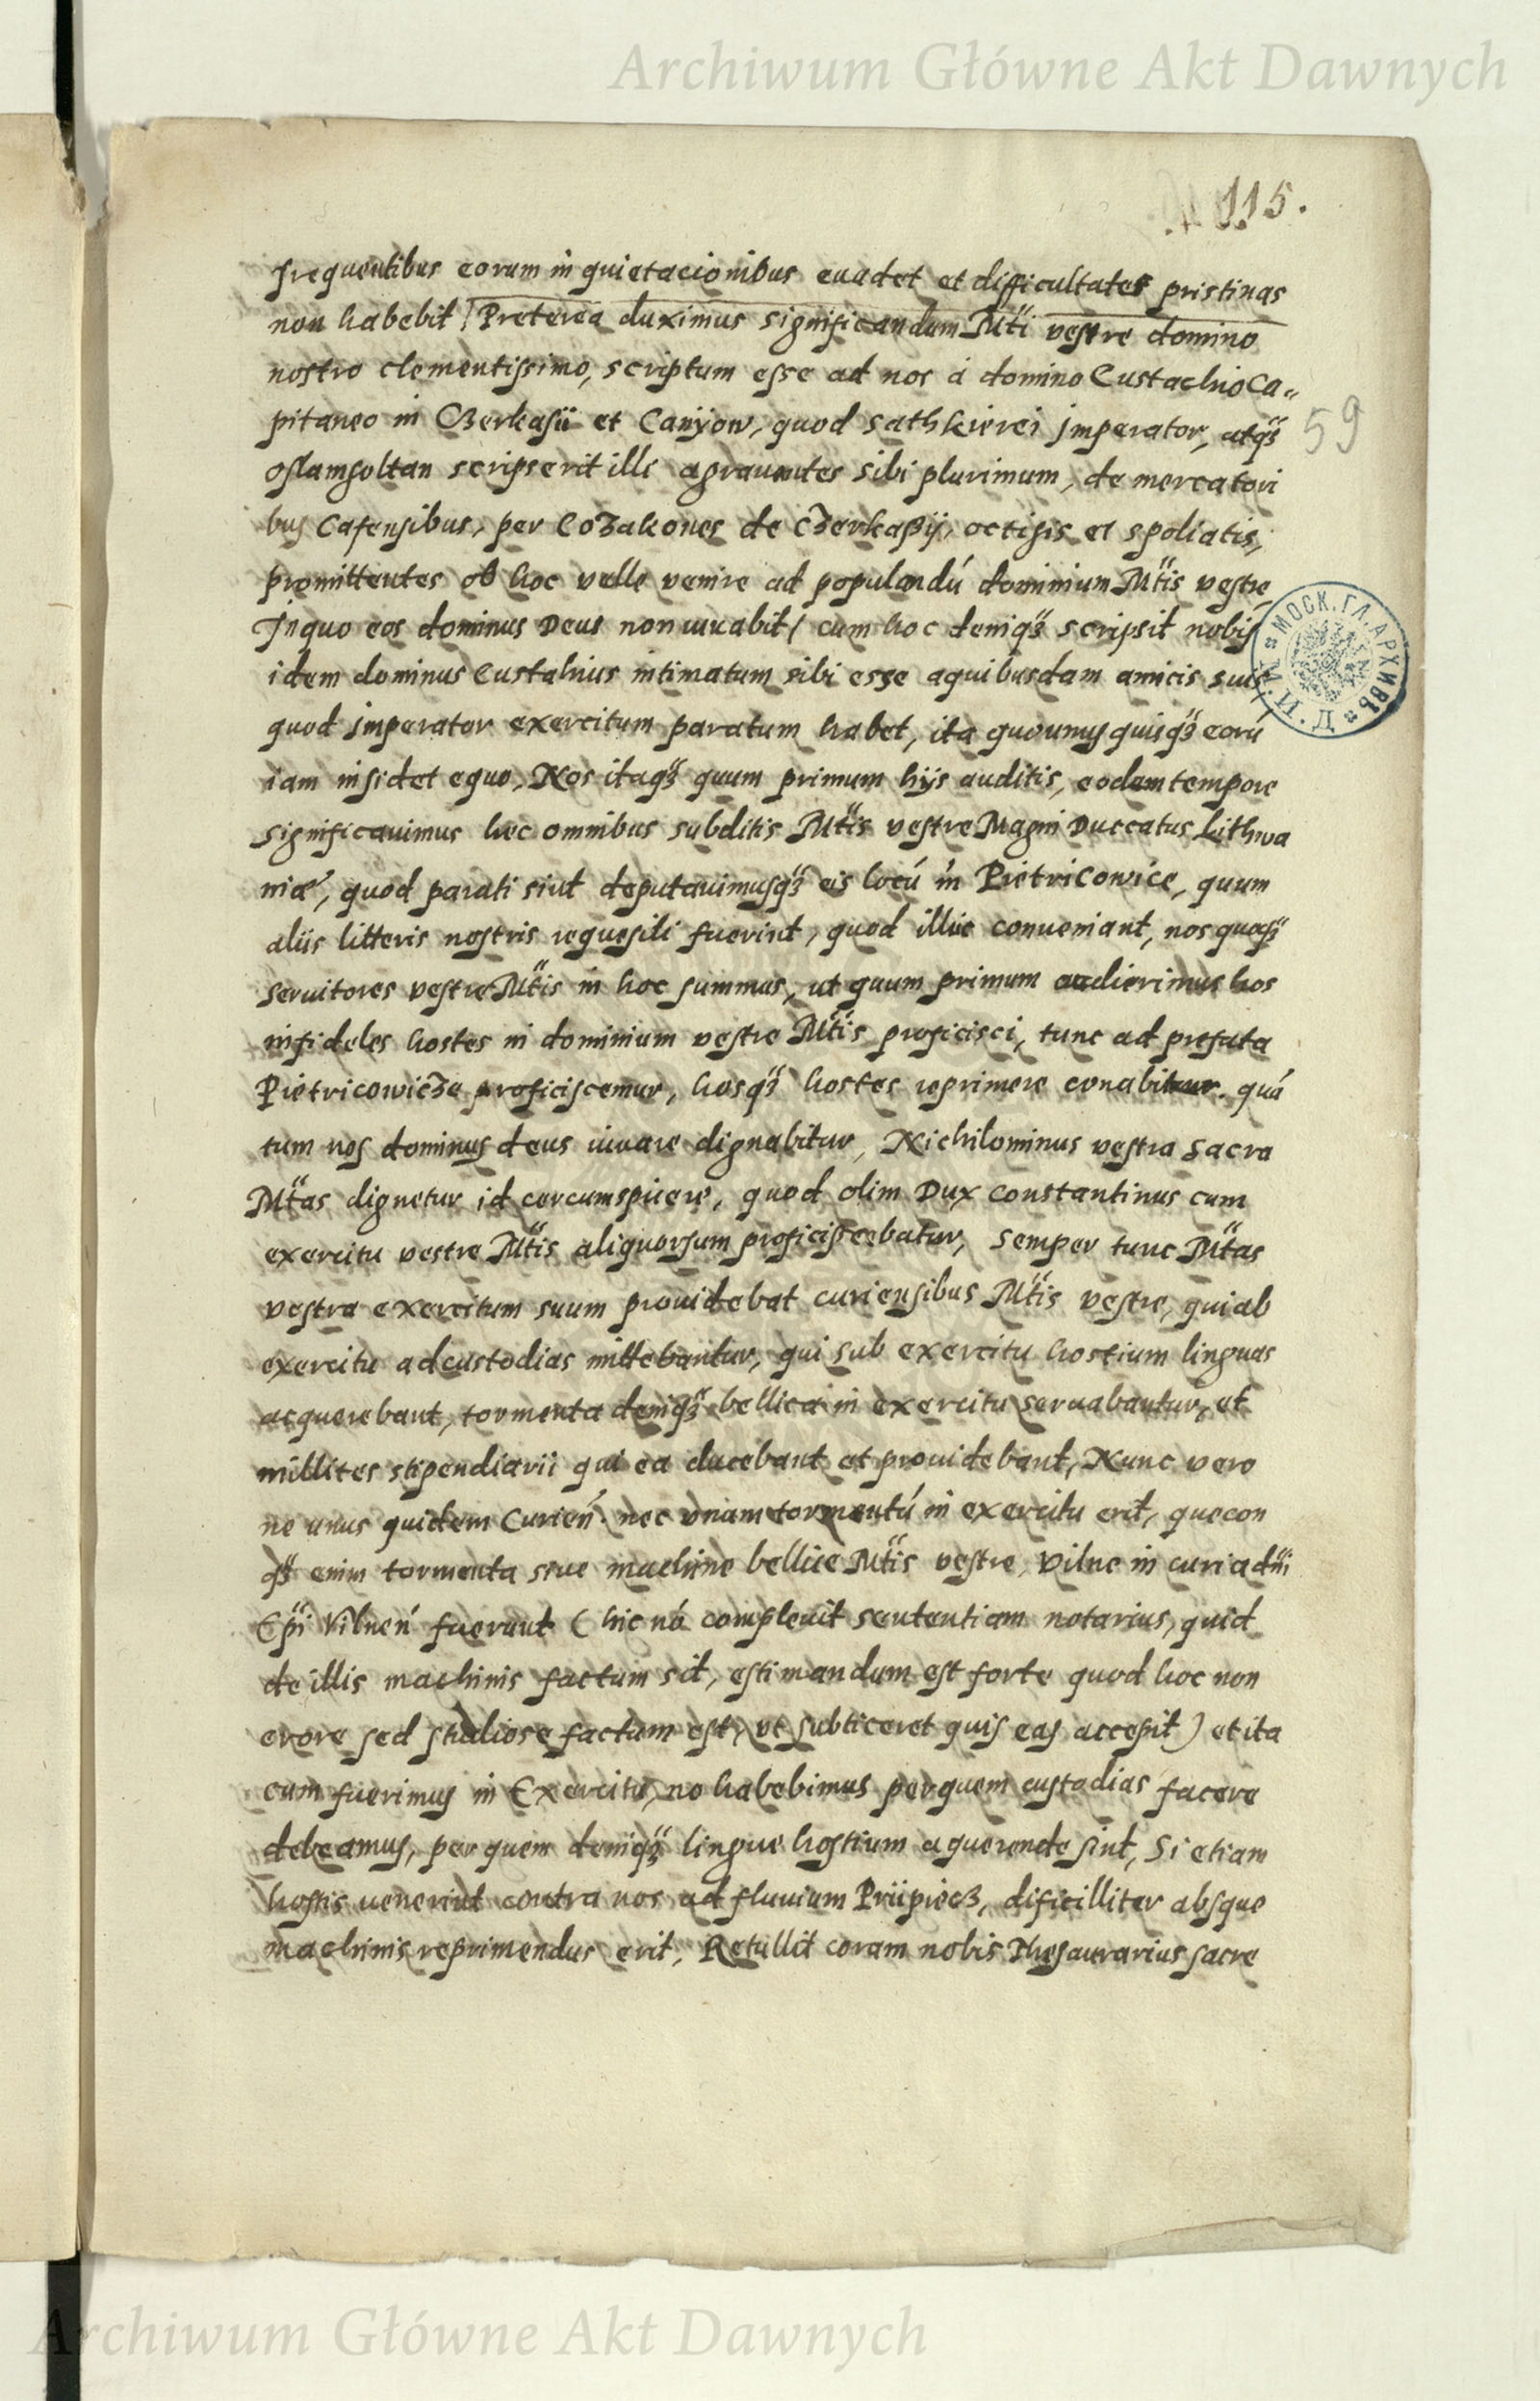 Archiwum Główne Akt Dawnych
115.
frequentibus eorum in quietacionibus euadet et difficultates pristinas
non habebit / Preterea duximus significandum Mti vestre domino
nostro clementissimo, scriptum esse ad nos á domino Eustachio Ca„
pitaneo in Czerkasii et Canyow, quod sathkierei imperator, atq3
59
oslamsoltan scripserit illi agrauantes sibi plurimum, de mercatori
bus Cafensibus, per CoZakones de cZerkaßij, occisis et spoliatis,
promittentes ob hoc velle venire ad populandú dominium Mtis vestre,
In quo eos dominus Deus non iuuabit / cum hoc deniq3 scripsit nobis
idem dominus Eustahius intimatum sibi esse aquibusdam amicis suis
quod imperator exercitum paratum habet, ita quo unus quisq3 eorú
iam insidet equo, Nos itaq3 quum primum hijs auditis, eodem tempore
significauimus hec omnibus subditis Mtis vestre Magni Duccatus Lithwa
niæ, quod parati sint deputauimusq3 eis locú in Pietricowice, quum
aliis litteris nostris requesiti fuerint, quod illuc conueniant, nos quoq3
seruitores vestre Mtis in hoc summus, ut quum primum audierimus hos
infideles hostes in dominium vestre Mtis proficisci, tunc ad prefata
PietricowicZe proficiscemur, hosq3 hostes reprimere conabimur. quá
tum nos dominus deus iuuare dignabitur, Nichilominus vestra sacra
Mtas dignetur id corcumspicere, quod olim Dux Constantinus cum
exercitu vestre Mtis aliquorsum proficiscebatur, semper tunc Mtas
vestra exercitum suum prouidebat curiensibus Mtis vestre, qui ab
exercitu ad custodias mittebantur, qui sub exercitu hostium linguas
acquerebant, tormenta deniq3 bellica in exercitu seruabantur, et
millites stipendiarii qui ea ducebant et prouidebant, Nunc vero
ne unus quidem Curien. nec vnam tormentú in exercitu erit, quecon
q3 enim tormenta siue machine bellice Mtis vestre, Vilne in curia dni
Epi Vilnen fuerunt ( hic nó compleuit sententiam notarius, quid
de illis machinis factum sit, estimandum est forte quod hoc non
erore sed studiose factum est, vt subticeret quis eas accepit ) et ita
cum fuerimus in Exercitu, no habebimus per quem custodias facere
debeamus, per quem deniq3 lingue hostium aquerende sint, Si etiam
hostis uenerint contra nos ad fluuium Priipiecz, dificilliter absque
machinis reprimendus erit, Retullit coram nobis Thesaurarius sacre
МОСК. ГЛ. АРХИВЪ
М. И. Д.
Archiwum Główne Akt Dawnych